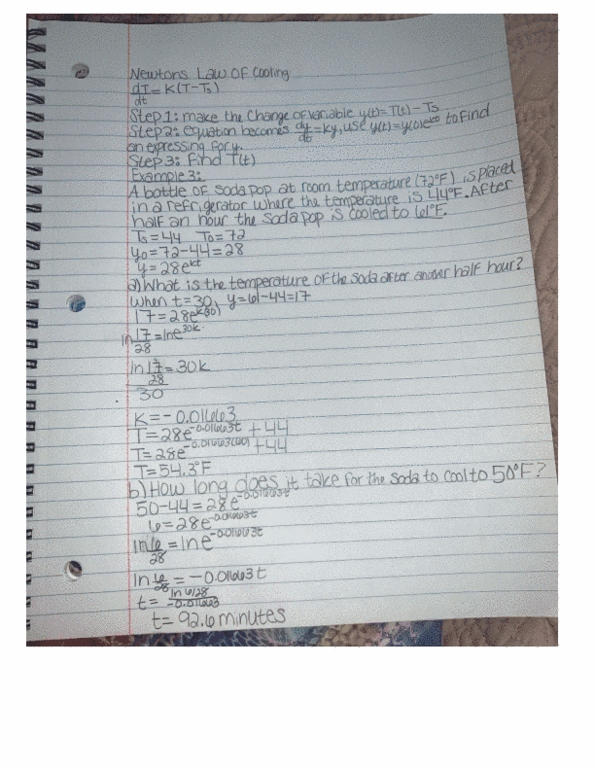 Newtons Law OF Cooling
dT/dt = K(T-Ts)
Step 1: make the Change of variable y(t)= T(t)- Ts
Step 2: equation becomes dy/dt = ky, use y(t)=y(0)e^kt to find
an expressing for y.
Step 3: Find T(t)
Example 3:
A bottle of soda pop at room temperature (72°F) is placed
in a refrigerator where the temperature is 44°F. After
half an hour the soda pop is cooled to 61°F.
Ts=44 T0=72
y0=72-44=28
y=28e^kt
a) What is the temperature of the soda after another half hour?
when t=30, y=61-44=17
17=28e^k(30)
ln 17/28 = lne^30k
ln 17/28 = 30k
30
K=-0.01663
T=28e^-0.01663t +44
T=28e^-0.01663(60) +44
T=54.3°F
b) How long does it take for the soda to cool to 50°F?
50-44=28e^-0.01663t
6=28e^-0.01663t
ln 6/28 = ln e^-0.01663t
ln 6/28 = -0.01663t
t= ln 6/28 / -0.01663
t= 92.6 minutes